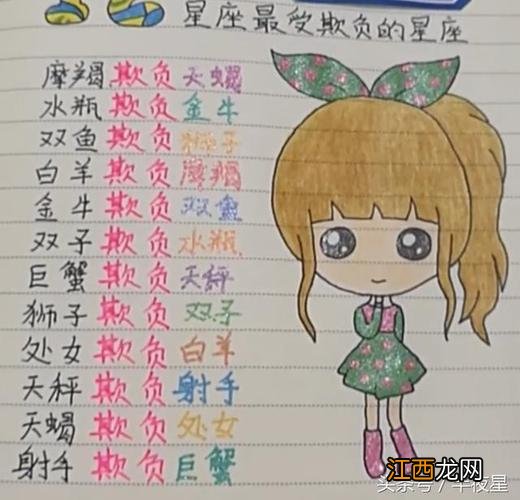 星座最受欺负的星座
摩羯欺负天蝎
水瓶欺负金牛
双鱼欺负狮子
白羊欺负摩羯
金牛欺负双鱼
双子欺负水瓶
巨蟹欺负天秤
狮子欺负双子
处女欺负白羊
天秤欺负射手
天蝎欺负处女
射手欺负巨蟹
江西龙网
头条号／半夜星